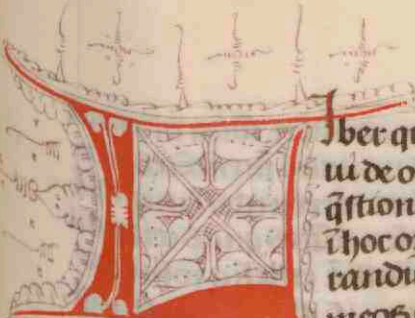 Iber qu
ui de o
q̃stion
ĩ hoc oꝛ
randu